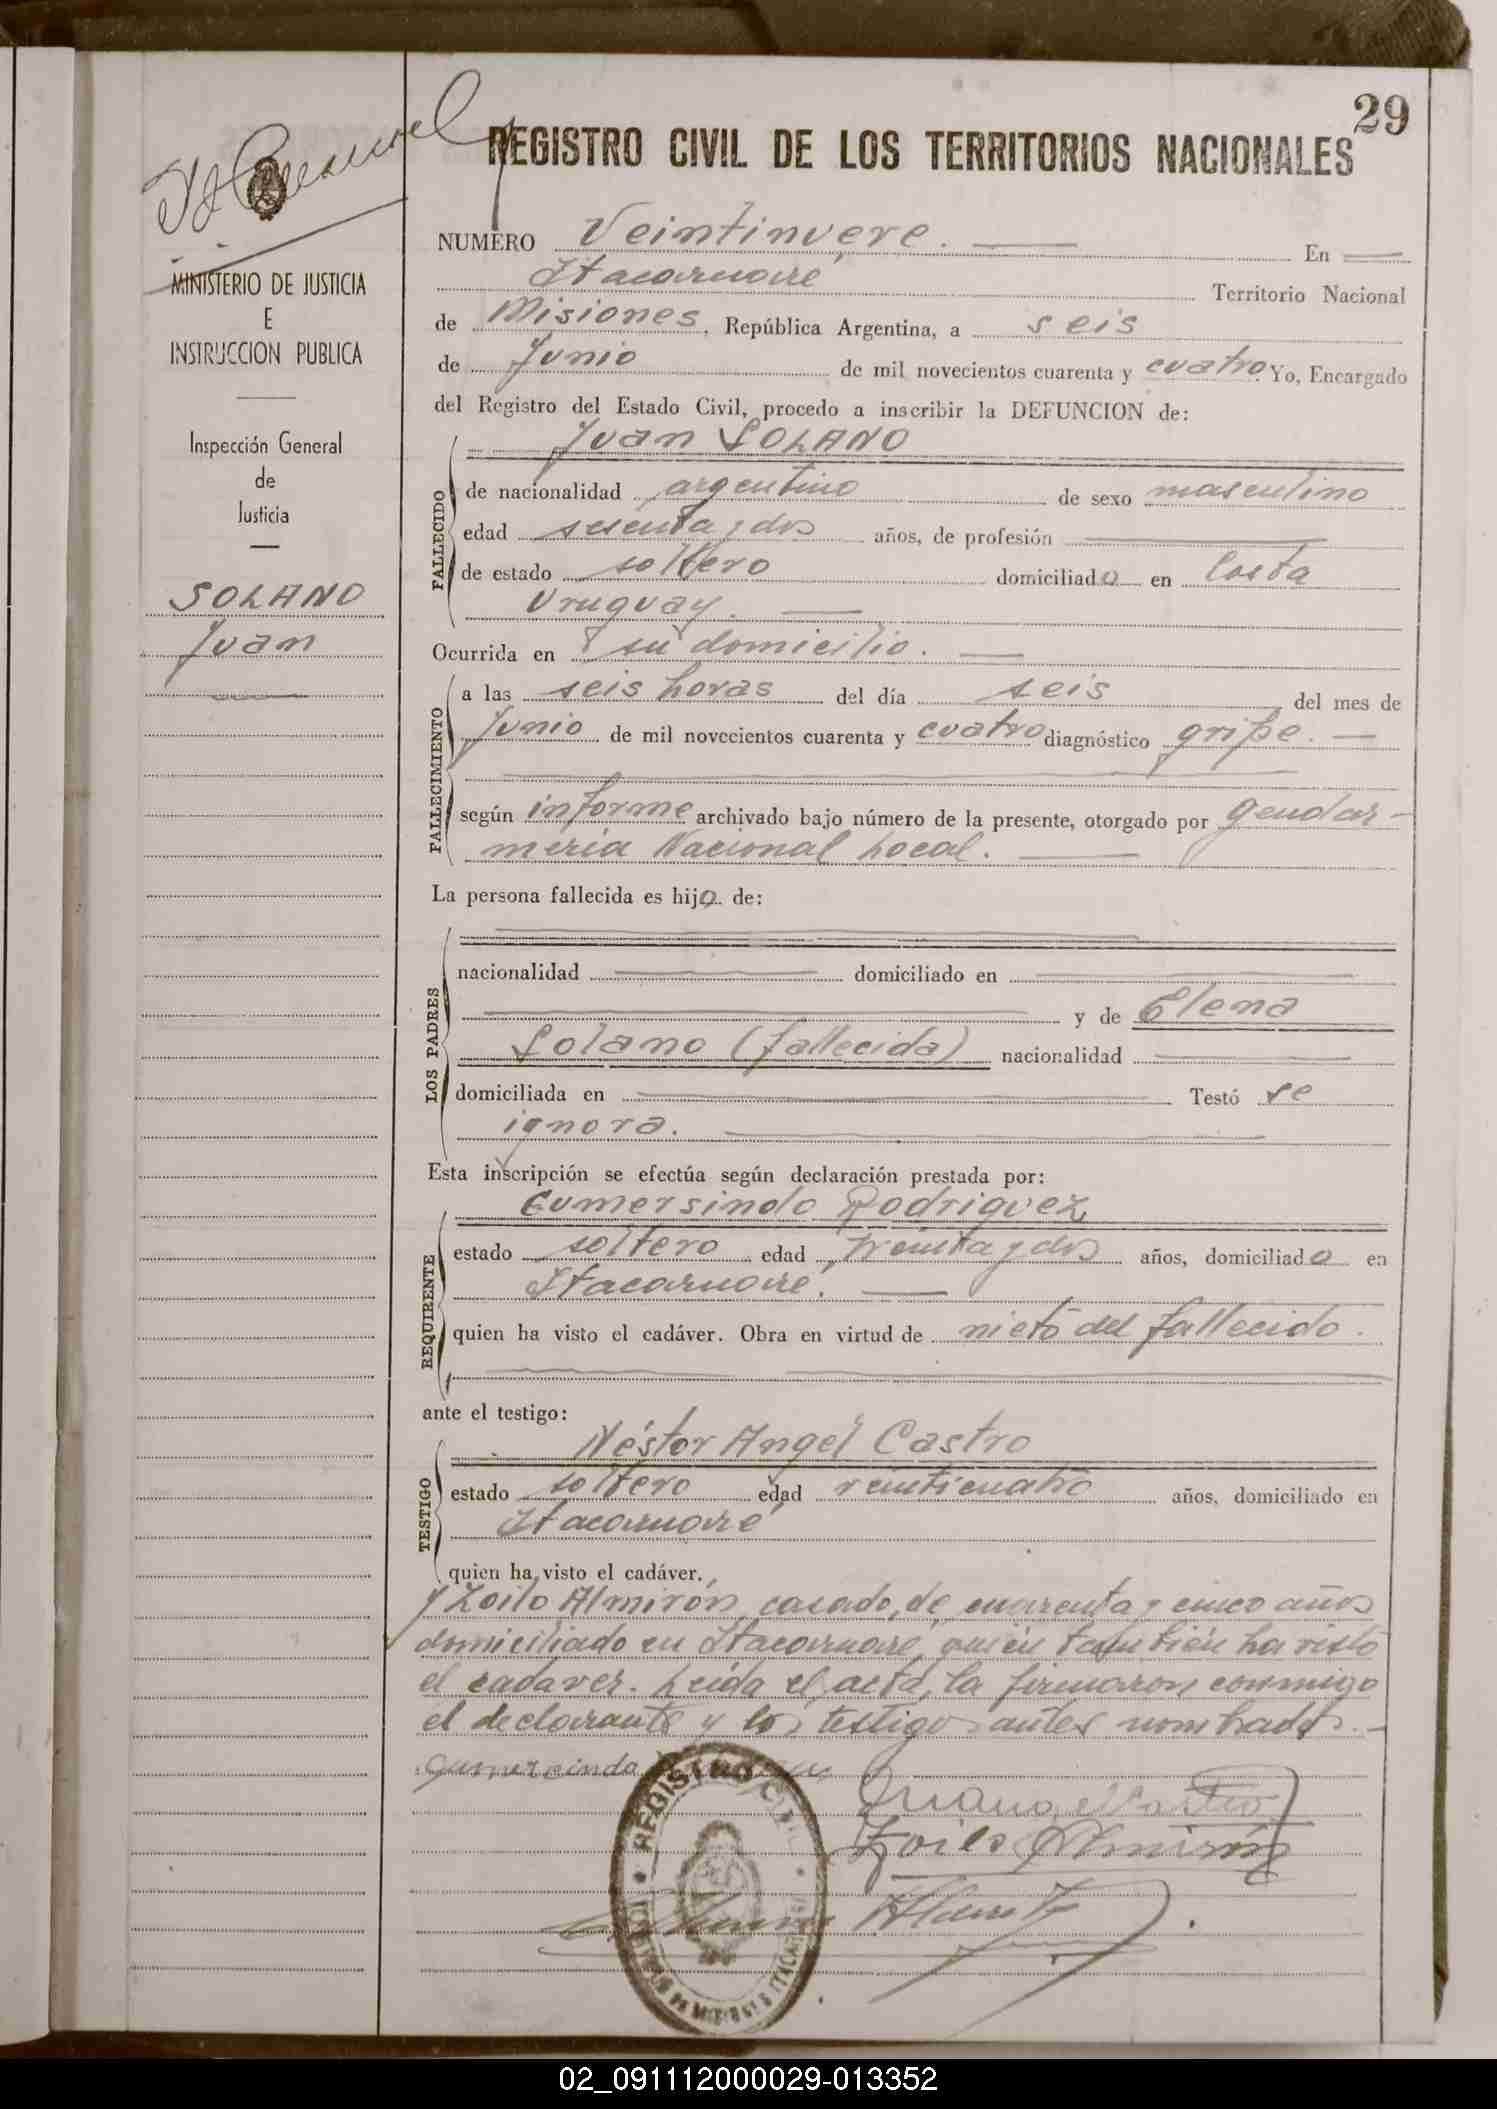 29
REGISTRO CIVIL DE LOS TERRITORIOS NACIONALES
MINISTERIO DE JUSTICIA
E
INSTRUCCION PUBLICA
Inspección General
de
Justicia
SOLANO
Juan
NUMERO Veintinueve. En
Itacaruaré Territorio Nacional
de Misiones, República Argentina, a seis
de Junio de mil novecientos cuarenta y cuatro Yo, Encargado
del Registro del Estado Civil, procedo a inscribir la DEFUNCION de:
Juan SOLANO
FALLECIDO
de nacionalidad argentino de sexo masculino
edad sesenta y dos años, de profesión
de estado soltero domiciliado en Costa
Uruguay.
Ocurrida en su domicilio.
FALLECIMIENTO
a las seis horas del día seis del mes de
Junio de mil novecientos cuarenta y cuatro diagnóstico gripe.
según informe archivado bajo número de la presente, otorgado por Gendar-
meria Nacional Local.
La persona fallecida es hijo de:
LOS PADRES
nacionalidad domiciliado en
y de Elena
Solano (fallecida) nacionalidad
domiciliada en Testó se
ignora.
Esta inscripción se efectúa según declaración prestada por:
Gumersindo Rodriguez
REQUIRENTE
estado soltero edad treinta y dos años, domiciliado en
Itacaruaré.
quien ha visto el cadáver. Obra en virtud de nieto del fallecido.
ante el testigo:
Néstor Angel Castro
TESTIGO
estado soltero edad veinticuatro años, domiciliado en
Itacaruaré
quien ha visto el cadáver.
y Zoilo Almirón, casado, de cuarenta y cinco años
domiciliado en Itacaruaré, quien también ha visto
el cadaver. Leída el acta, la firmaron conmigo
el declarante y los testigos antes nombrados.-
Gumersindo
Zoilo Almirón
REGISTRO CIVIL
02_091112000029-013352